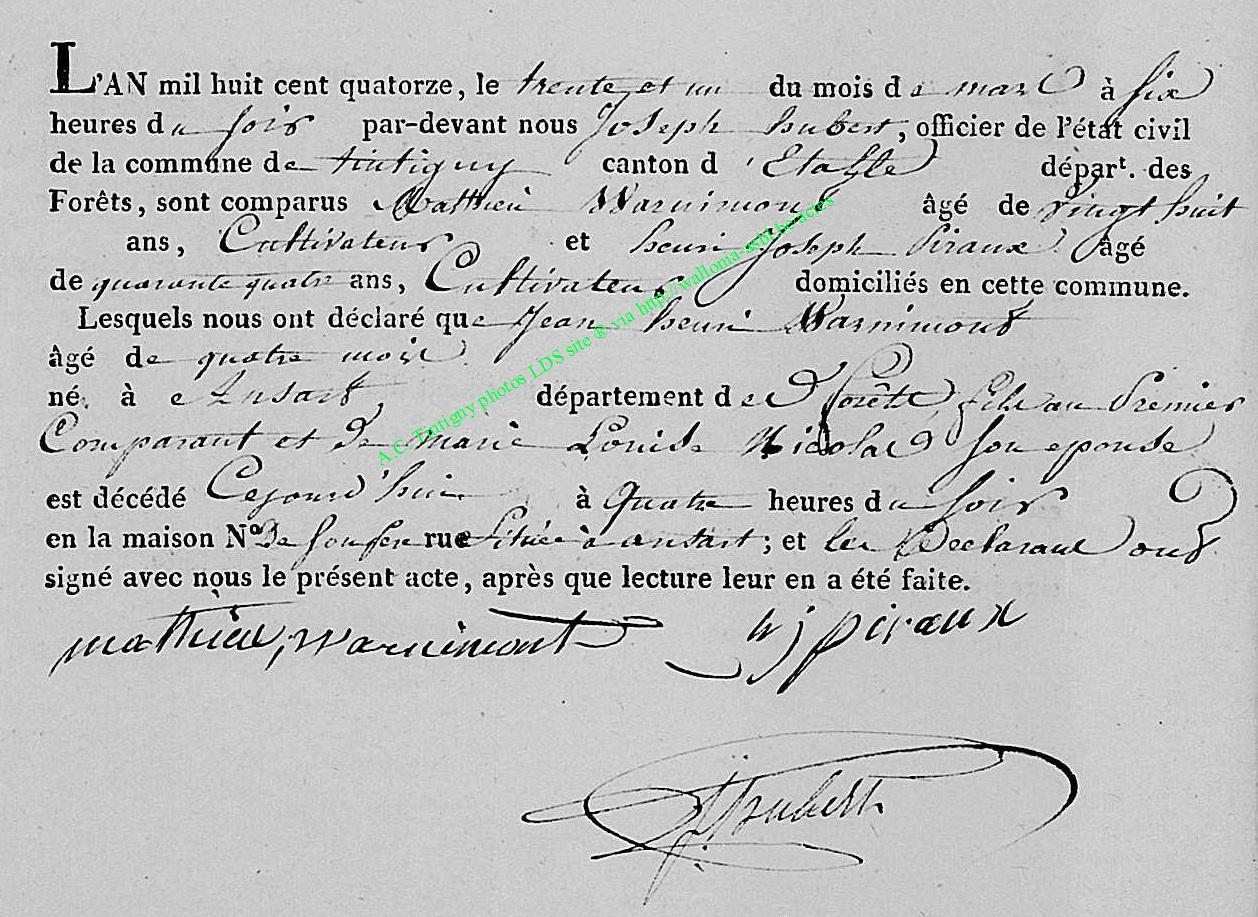 L'AN mil huit cent quatorze, le trente et un du mois de mars à six
heures du soir par-devant nous Joseph hubert, officier de l'état civil
de la commune de tintigny canton d'Etalle départ. des
Forêts, sont comparus Matthieu Warnimont âgé de vingt huit
ans, Cultivateur et henri Joseph Piraux âgé
de quarante quatre ans, Cultivateur domiciliés en cette commune.
Lesquels nous ont déclaré que Jean henri Warnimont
âgé de quatre mois
né à Ansart département des forêts, fils au Premier
Comparant et de marie Louise Nicolas son epouse
est décédé Cejourd'hui à quatre heures du soir
en la maison No. De son père rue située à ansart; et les Declarans ont
signé avec nous le présent acte, après que lecture leur en a été faite.
mathieu, warnimont hj piraux
J hubert
A.C. Tintigny photos LDS site ® via http://wallonia-asbl.be/actes